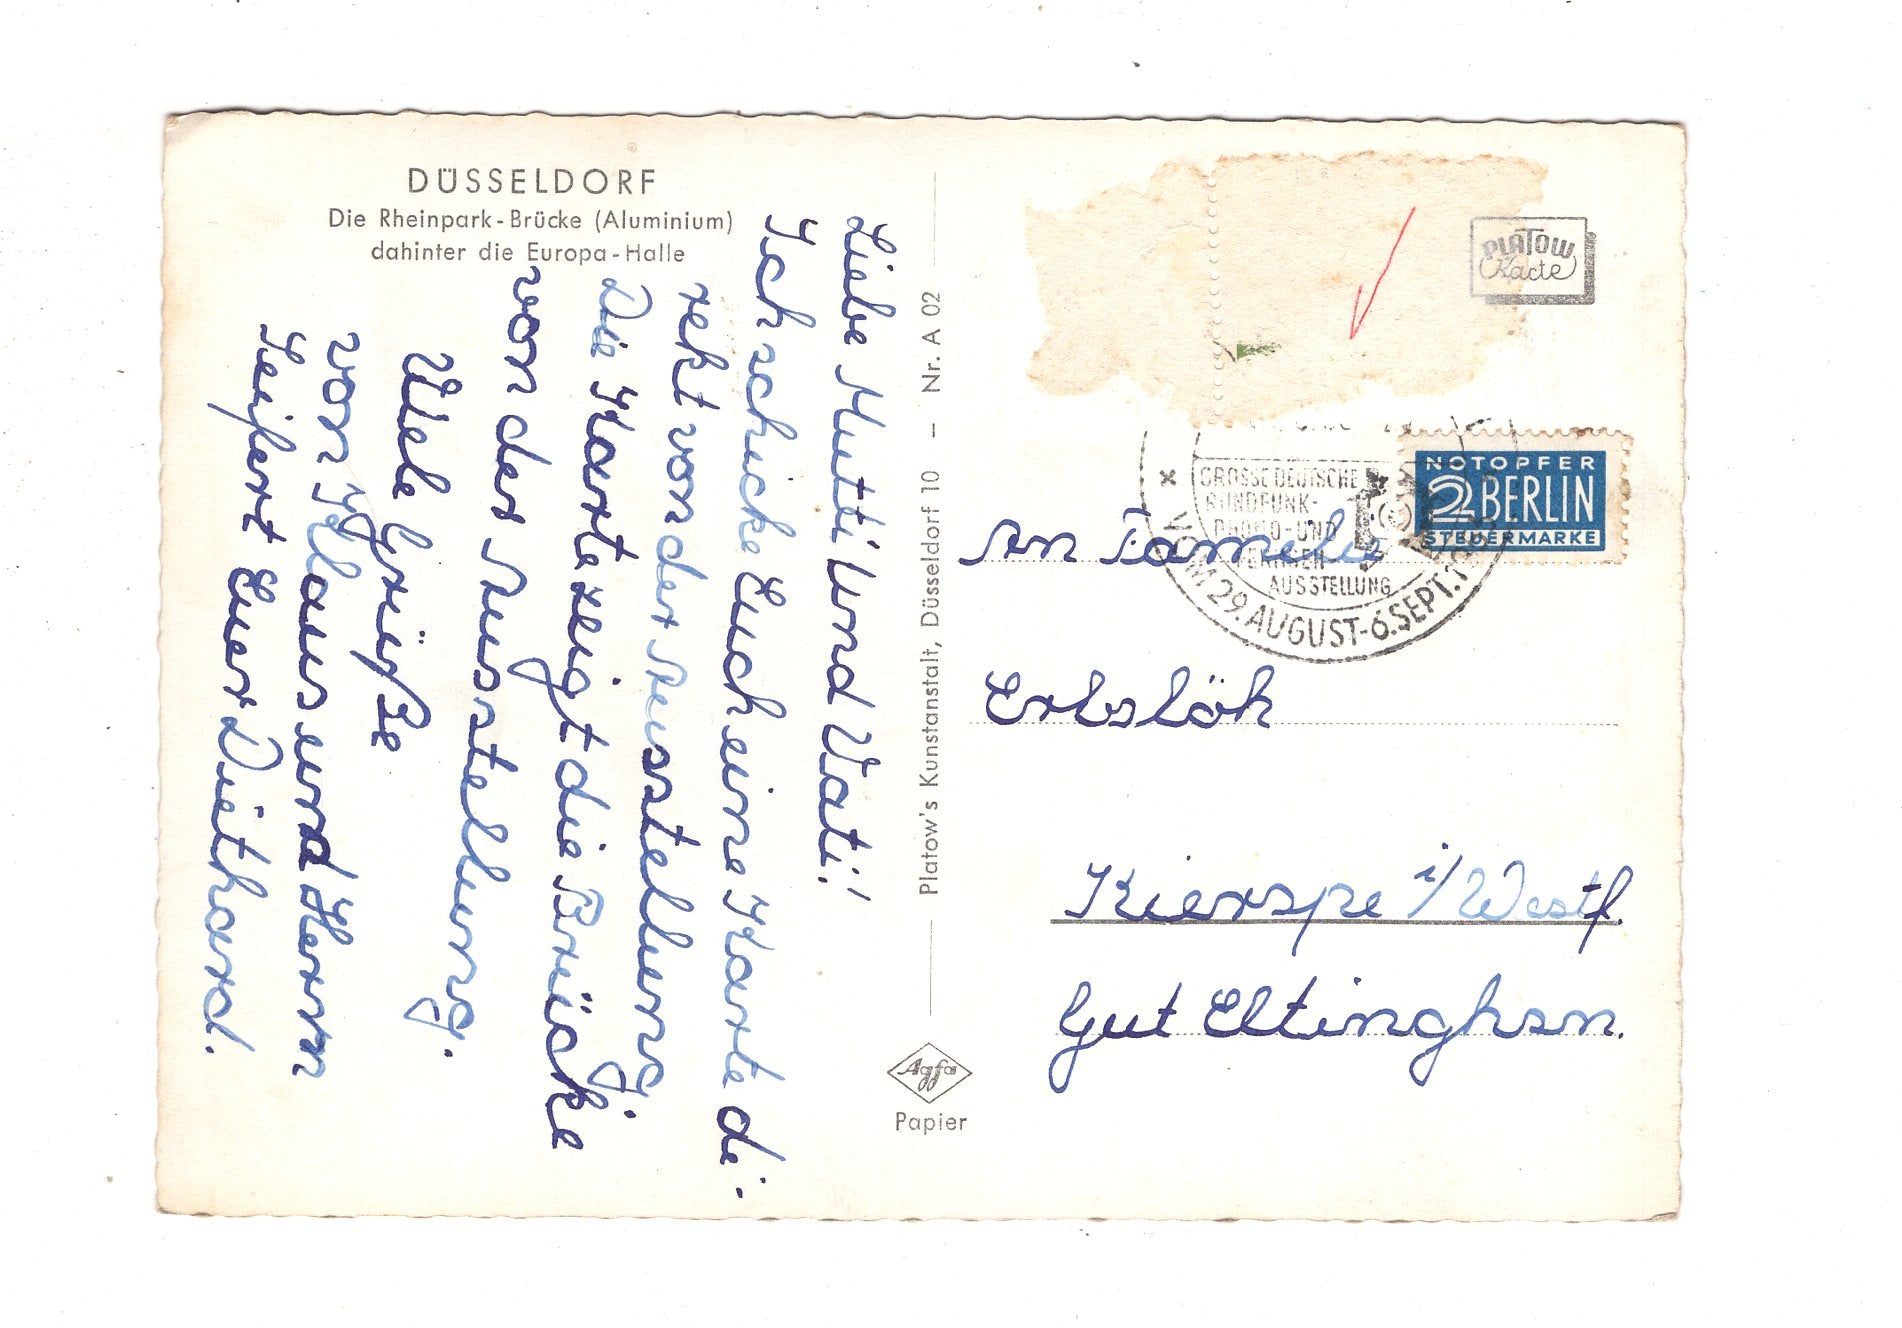 DÜSSELDORF
Die Rheinpark-Brücke (Aluminium)
dahinter die Europa-Halle
Liebe Mutti Und Vati!
Ich schicke Euch eine Karte di-
rekt von der Ausstellung.
Die Karte zeigt die Brücke
von der Ausstellung.
Viele Grüße
von Klaus und Herrn
Seifert Euer Diethard.
Platow's Kunstanstalt, Düsseldorf 10 – Nr. A 02
Agfa
Papier
PLATOW
Karte
NOTOPFER
2 BERLIN
STEUERMARKE
GROSSE DEUTSCHE
RUNDFUNK-
PHONO-UND
FERNSEH
AUSSTELLUNG
VOM 29. AUGUST-6. SEPT.
An Familie
Erbslöh
Kierspe i/Westf.
Gut Eltinghsn.